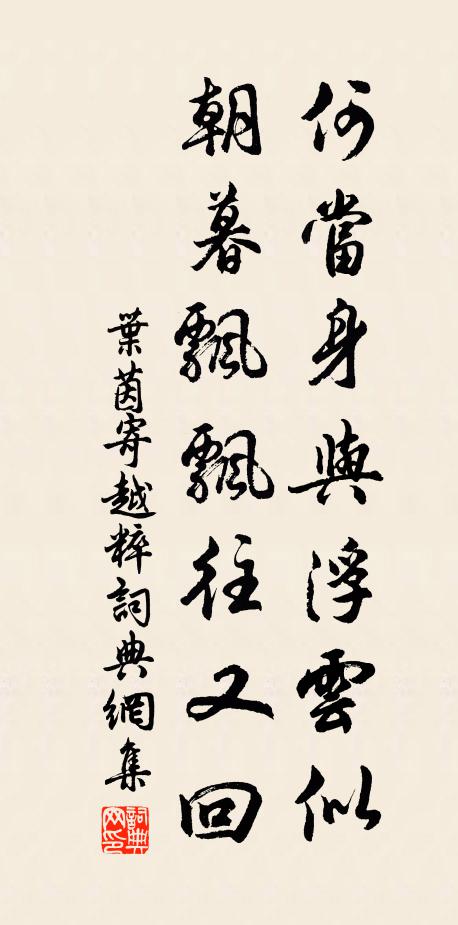 何當身與浮雲似
朝暮飄飄往又回
葉茵寄越粹詞典網集
詞典網印